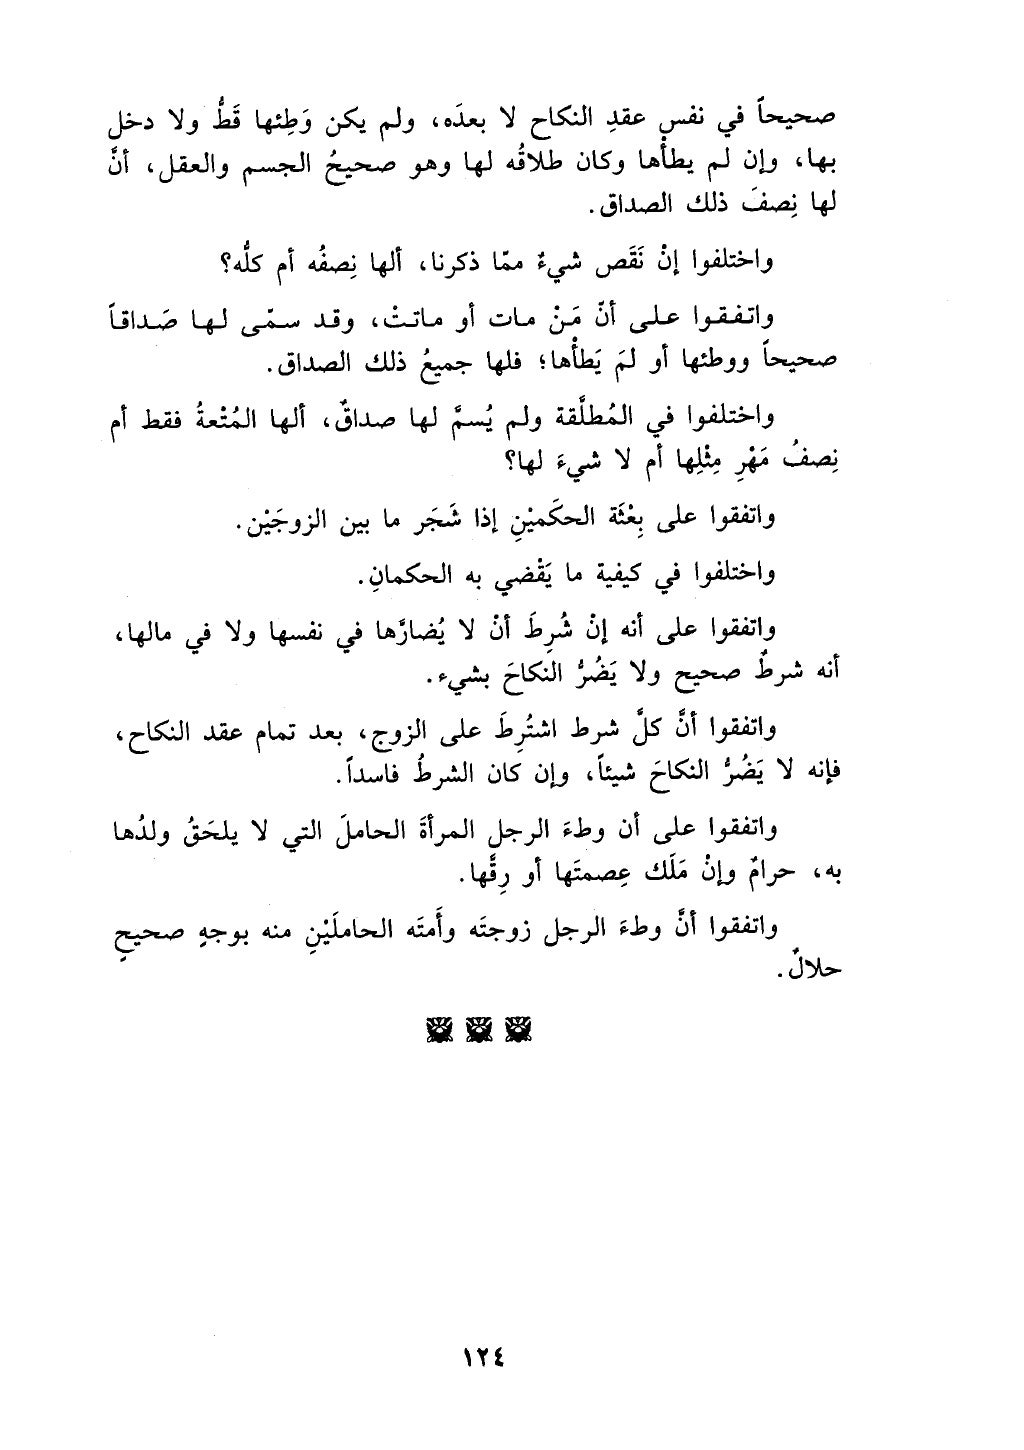 صحيحاً في نفس عقدِ النكاح لا بعدَه، ولم يكن وَطِئها قَطُّ ولا دخل
بها، وإن لم يطأْها وكان طلاقُه لها وهو صحيحُ الجسم والعقل، أنَّ
لها نِصفَ ذلك الصداق.
واختلفوا إنْ نَقَص شيءٌ ممّا ذكرنا، ألها نِصفُه أم كلُّه؟
واتفقوا على أنّ مَنْ مات أو ماتتْ، وقد سمّى لها صَداقاً
صحيحاً ووطئها أو لمَ يَطأْها؛ فلها جميعُ ذلك الصداق.
واختلفوا في المُطلَّقة ولم يُسمَّ لها صداقٌ، ألها المُتْعةُ فقط أم
نِصفُ مَهْرِ مِثْلِها أم لا شيءَ لها؟
واتفقوا على بِعْثَة الحكَميْنِ إذا شَجَر ما بين الزوجَيْن.
واختلفوا في كيفية ما يَقْضي به الحكمانِ.
واتفقوا على أنه إنْ شُرِطَ أنْ لا يُضارَّها في نفسها ولا في مالها،
أنه شرطٌ صحيح ولا يَضُرُّ النكاحَ بشيء.
واتفقوا أنَّ كلَّ شرط اشتُرِطَ على الزوج، بعد تمام عقد النكاح،
فإنه لا يَضُرُّ النكاحَ شيئاً، وإن كان الشرطُ فاسداً.
واتفقوا على أن وطءَ الرجل المرأةَ الحاملَ التي لا يلحَقُ ولدُها
به، حرامٌ وإنْ مَلَك عِصمتَها أو رِقَّها.
واتفقوا أنَّ وطءَ الرجل زوجتَه وأَمتَه الحاملَيْنِ منه بوجهٍ صحيحٍ
حلالٌ.
١٢٤